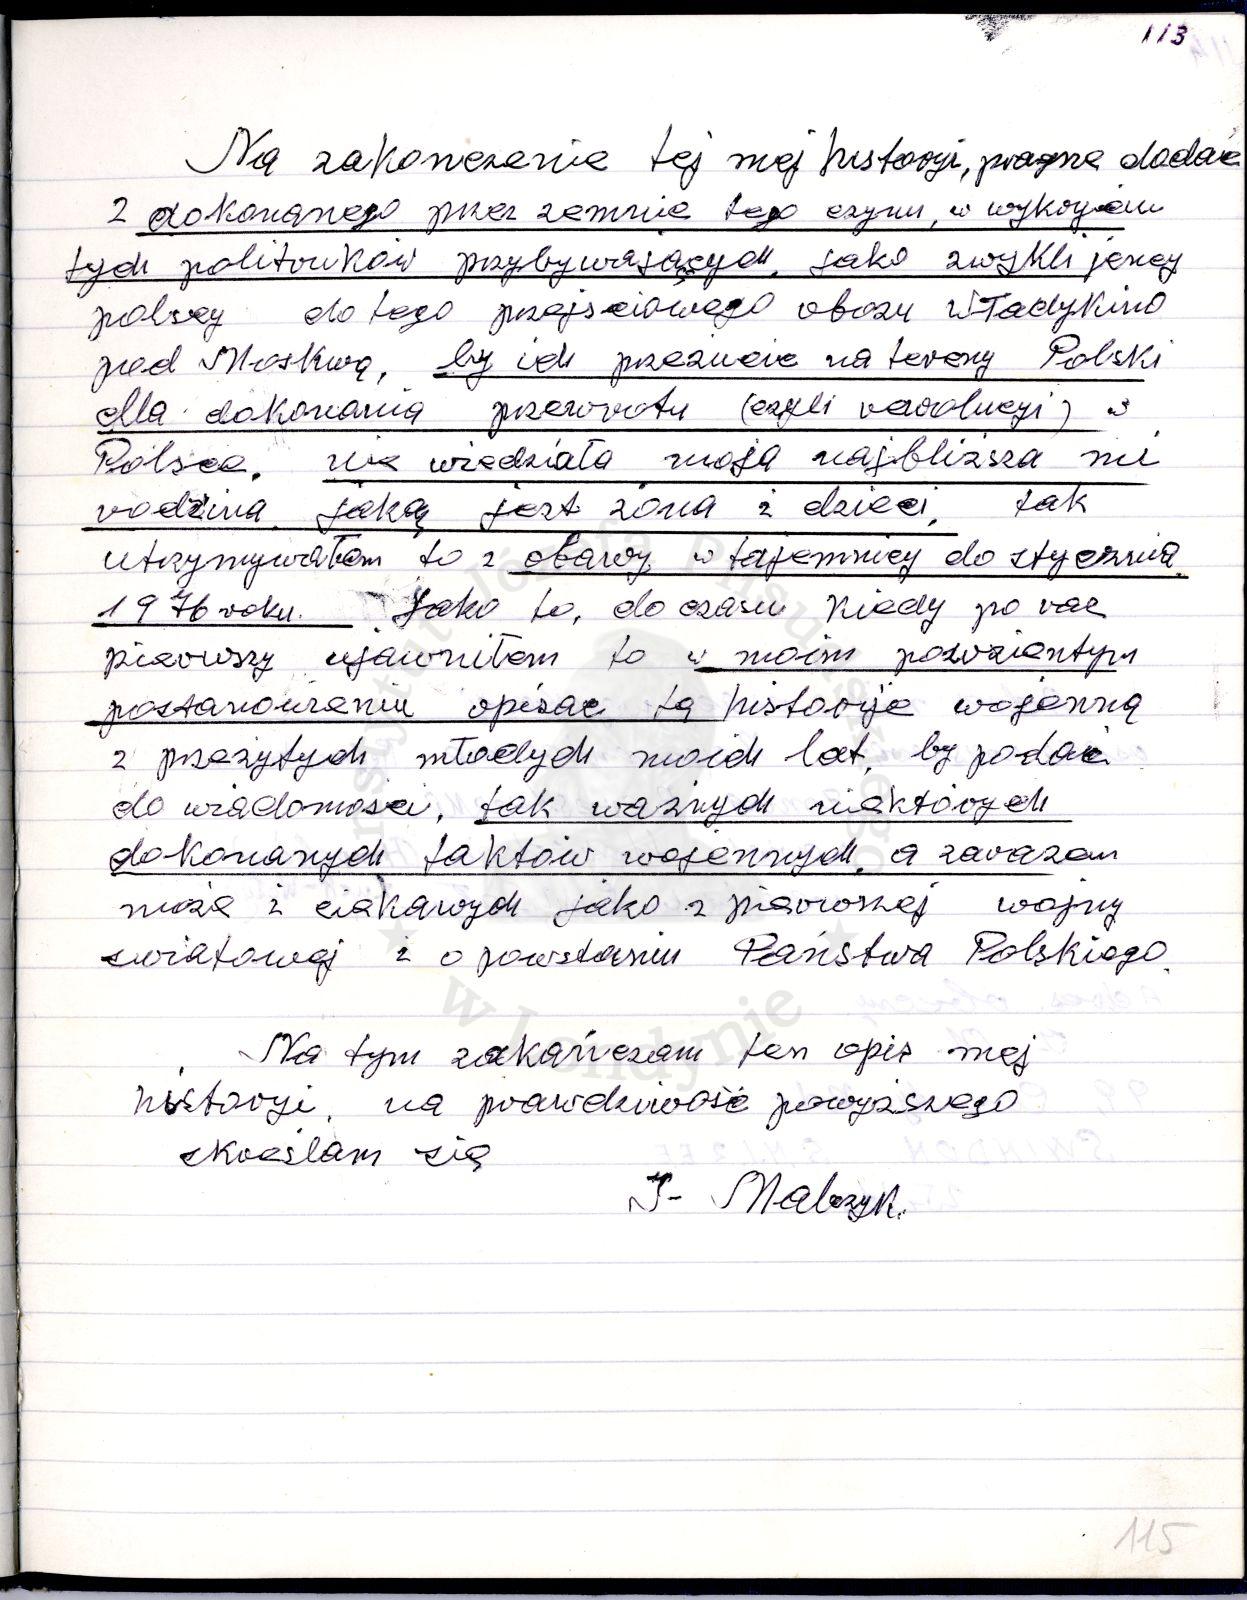 113
Na zakończenie tej mej historyi, pragnę dodać
z dokonanego przez zemnie tego czynu, w wykryciu
tych politruków przybywających, jako zwykli jeńcy
polscy do tego przejściowego obozu Władykino
pod Moskwą, by ich przeżucić na tereny Polski
dla dokonania przewrotu (czyli rewolucyi) w
Polsce, nie wiedziała moja najbliższa mi
rodzina, jaką jest żona i dzieci, tak
utrzymywałem to z obawy w tajemnicy do stycznia
1976 roku. Jako to, do czasu kiedy po raz
pierwszy ujawniłem to w moim powziętym
postanowieniu opisać tą historije wojenną
z przeżytych młodych moich lat, by podać
do wiadomości, tak ważnych niektórych
dokonanych faktów wojennych, a zarazem
może i ciekawych jako z pierwszej wojny
światowej i o powstaniu Państwa Polskiego.
Na tym zakańczam ten opis mej
historyi, na prawdziwość powyższego
skreślam się
J- Malczyk.
115
Instytut Józefa Piłsudskiego
w Londynie